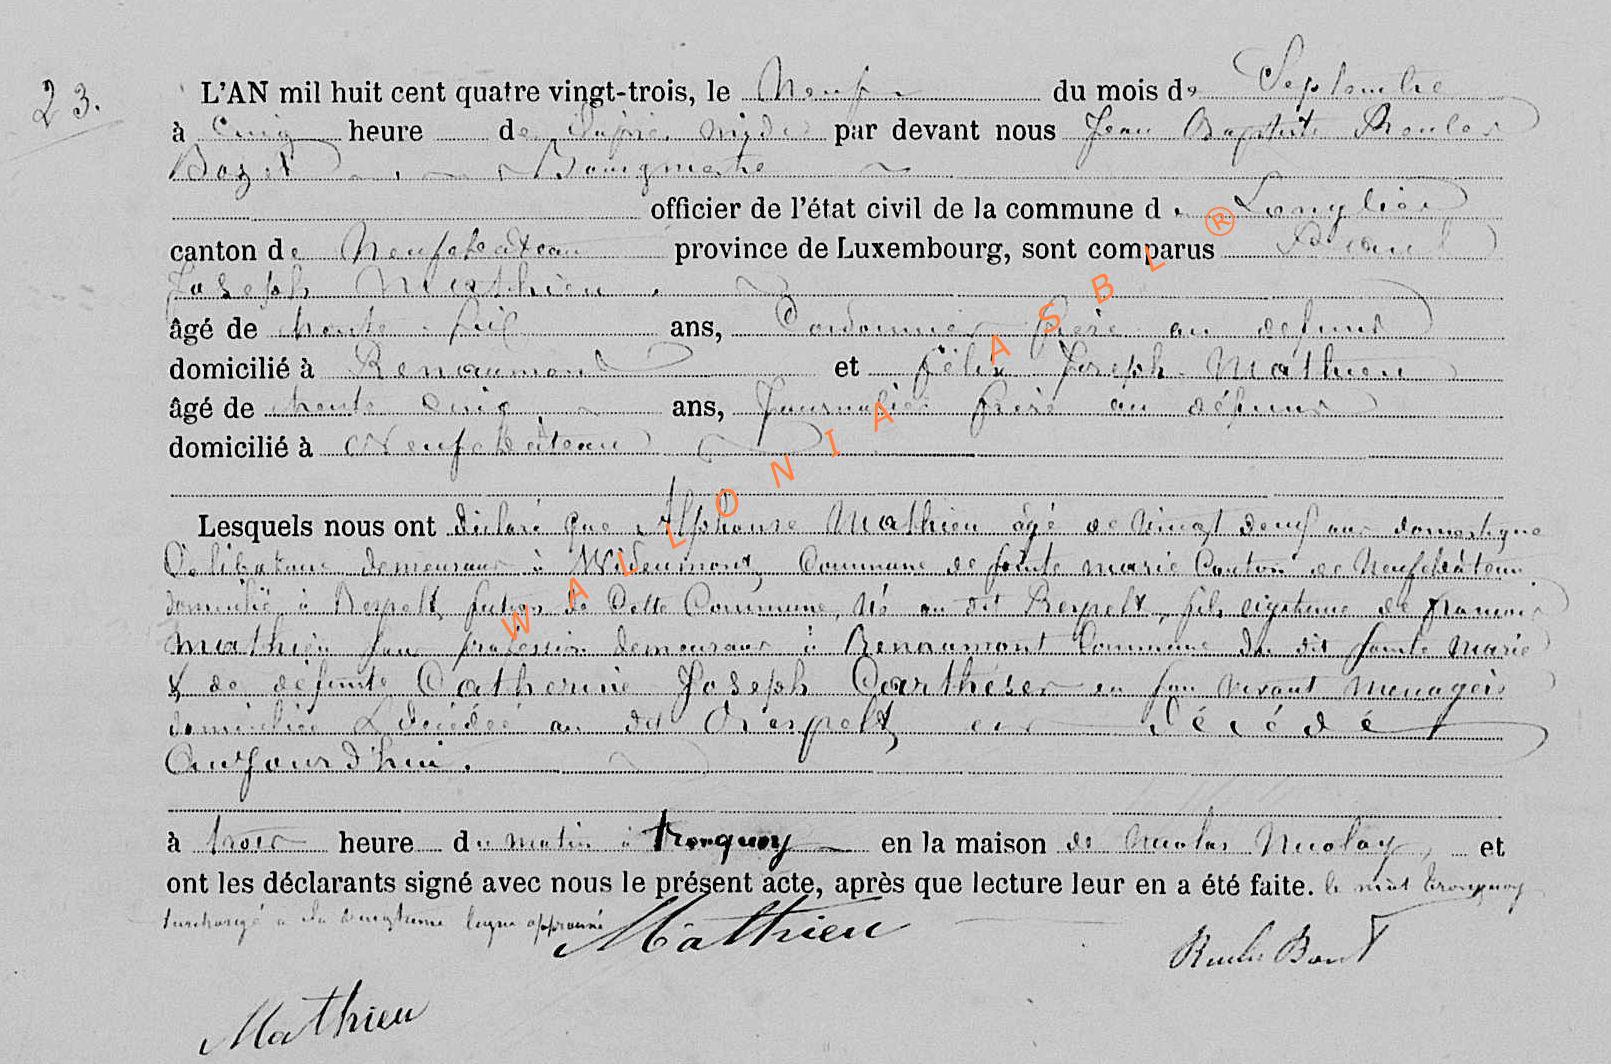 23.
L'AN mil huit cent quatre vingt-trois, le Neuf du mois de Septembre
à Cinq heure de l'après midi par devant nous Jean Baptiste
Bourgmestre
officier de l'état civil de la commune de Longlier
canton de Neufchateau province de Luxembourg, sont comparus
Joseph Mathieu
âgé de trente huit ans, Cordonnier frère au défunt
domicilié à Renaumont et Félix Joseph Mathieu
âgé de trente cinq ans, Journalier frère au défunt
domicilié à Neufchâteau
Lesquels nous ont déclaré que Alphonse Mathieu âgé de vingt neuf ans domestique
Célibataire demeurant à Wideumont, Commune de Sainte Marie Canton de Neufchâteau
domicilié à Respelt, section de Cette Commune, Né au dit Respelt, fils légitime de françois
Mathieu sans profession demeurant à Renaumont Commune du dit Sainte Marie
& de défunte Catherine Joseph en son vivant Menagère
domiciliée & décédée au dit Respelt, est Décédé
Aujourd'hui.
à trois heure du matin à tronquoy en la maison de Nicolas Nicolay, et
ont les déclarants signé avec nous le présent acte, après que lecture leur en a été faite. le mot tronquoy
surchargé à la ligne approuvé
Mathieu
Mathieu
WALLONIA ASBL ®